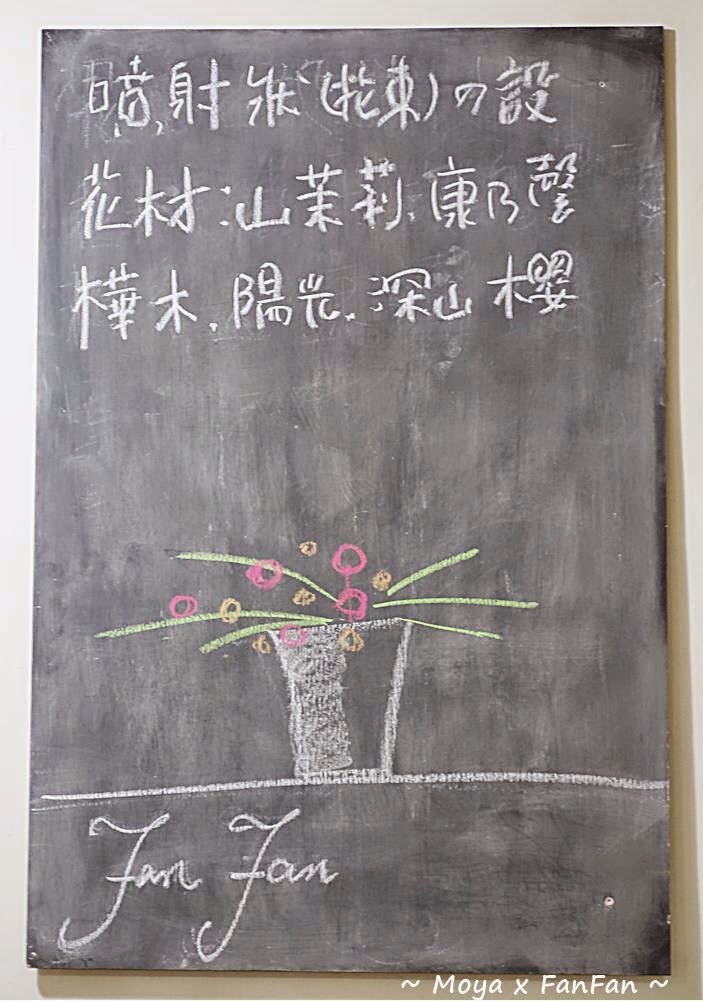 噴射狀(花束)の設
花材:山茉莉.康乃馨
樺木.陽光.深山櫻
Fan Fan
~ Moya x FanFan ~